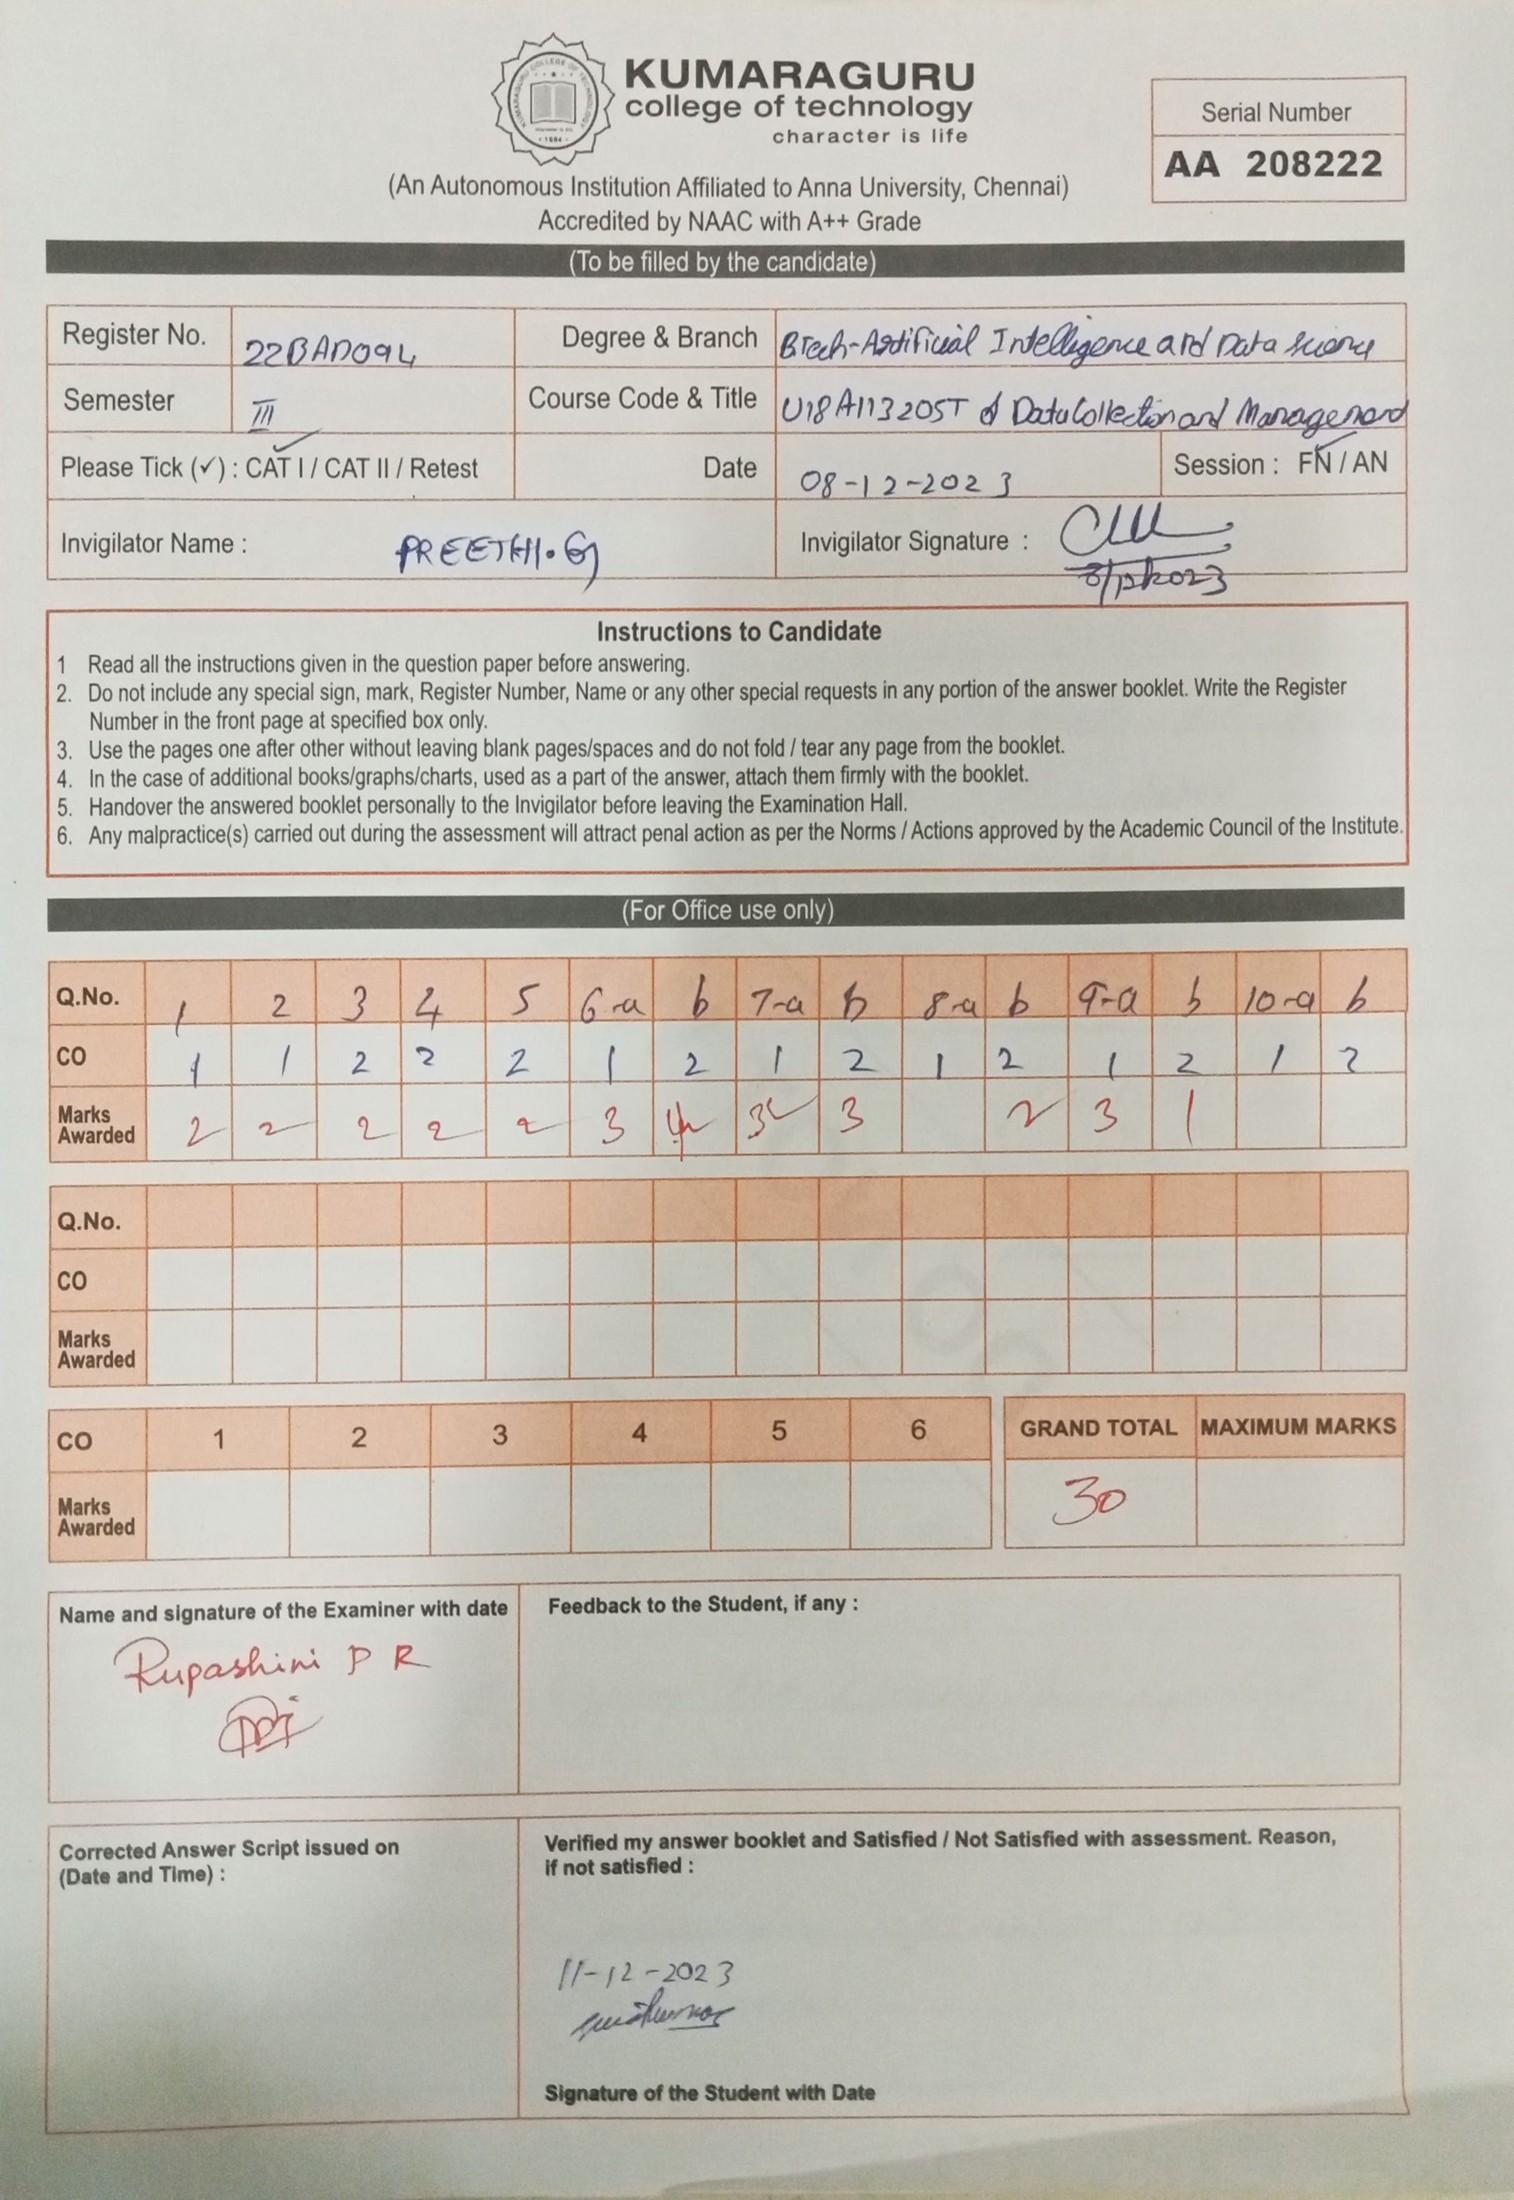 KUMARAGURU
college of technology
character is life
(An Autonomous Institution Affiliated to Anna University, Chennai)
Accredited by NAAC with A++ Grade
Serial Number
AA 208222
(To be filled by the candidate)
Register No. 22BAD094 Degree & Branch Btech-Artificial Intelligence and Data science
Semester III Course Code & Title U18AI13205T Data Collection and Management
Please Tick (✓) : CAT I / CAT II / Retest Date 08-12-2023 Session : FN / AN
Invigilator Name : PREETHI.G Invigilator Signature :
8/12/2023
Instructions to Candidate
1 Read all the instructions given in the question paper before answering.
2. Do not include any special sign, mark, Register Number, Name or any other special requests in any portion of the answer booklet. Write the Register
Number in the front page at specified box only.
3. Use the pages one after other without leaving blank pages/spaces and do not fold / tear any page from the booklet.
4. In the case of additional books/graphs/charts, used as a part of the answer, attach them firmly with the booklet.
5. Handover the answered booklet personally to the Invigilator before leaving the Examination Hall.
6. Any malpractice(s) carried out during the assessment will attract penal action as per the Norms / Actions approved by the Academic Council of the Institute.
(For Office use only)
Q.No. 1 2 3 4 5 6-a b 7-a b 8-a b 9-a b 10-a b
CO 1 1 2 2 2 1 2 1 2 1 2 1 2 1 2
Marks Awarded 2 2 2 2 2 3 4 3 3 2 3 1
Q.No.
CO
Marks Awarded
CO 1 2 3 4 5 6 GRAND TOTAL MAXIMUM MARKS
Marks Awarded 30
Name and signature of the Examiner with date Feedback to the Student, if any :
Rupashini P R
Corrected Answer Script issued on
(Date and Time) :
Verified my answer booklet and Satisfied / Not Satisfied with assessment. Reason,
if not satisfied :
11-12-2023
Signature of the Student with Date